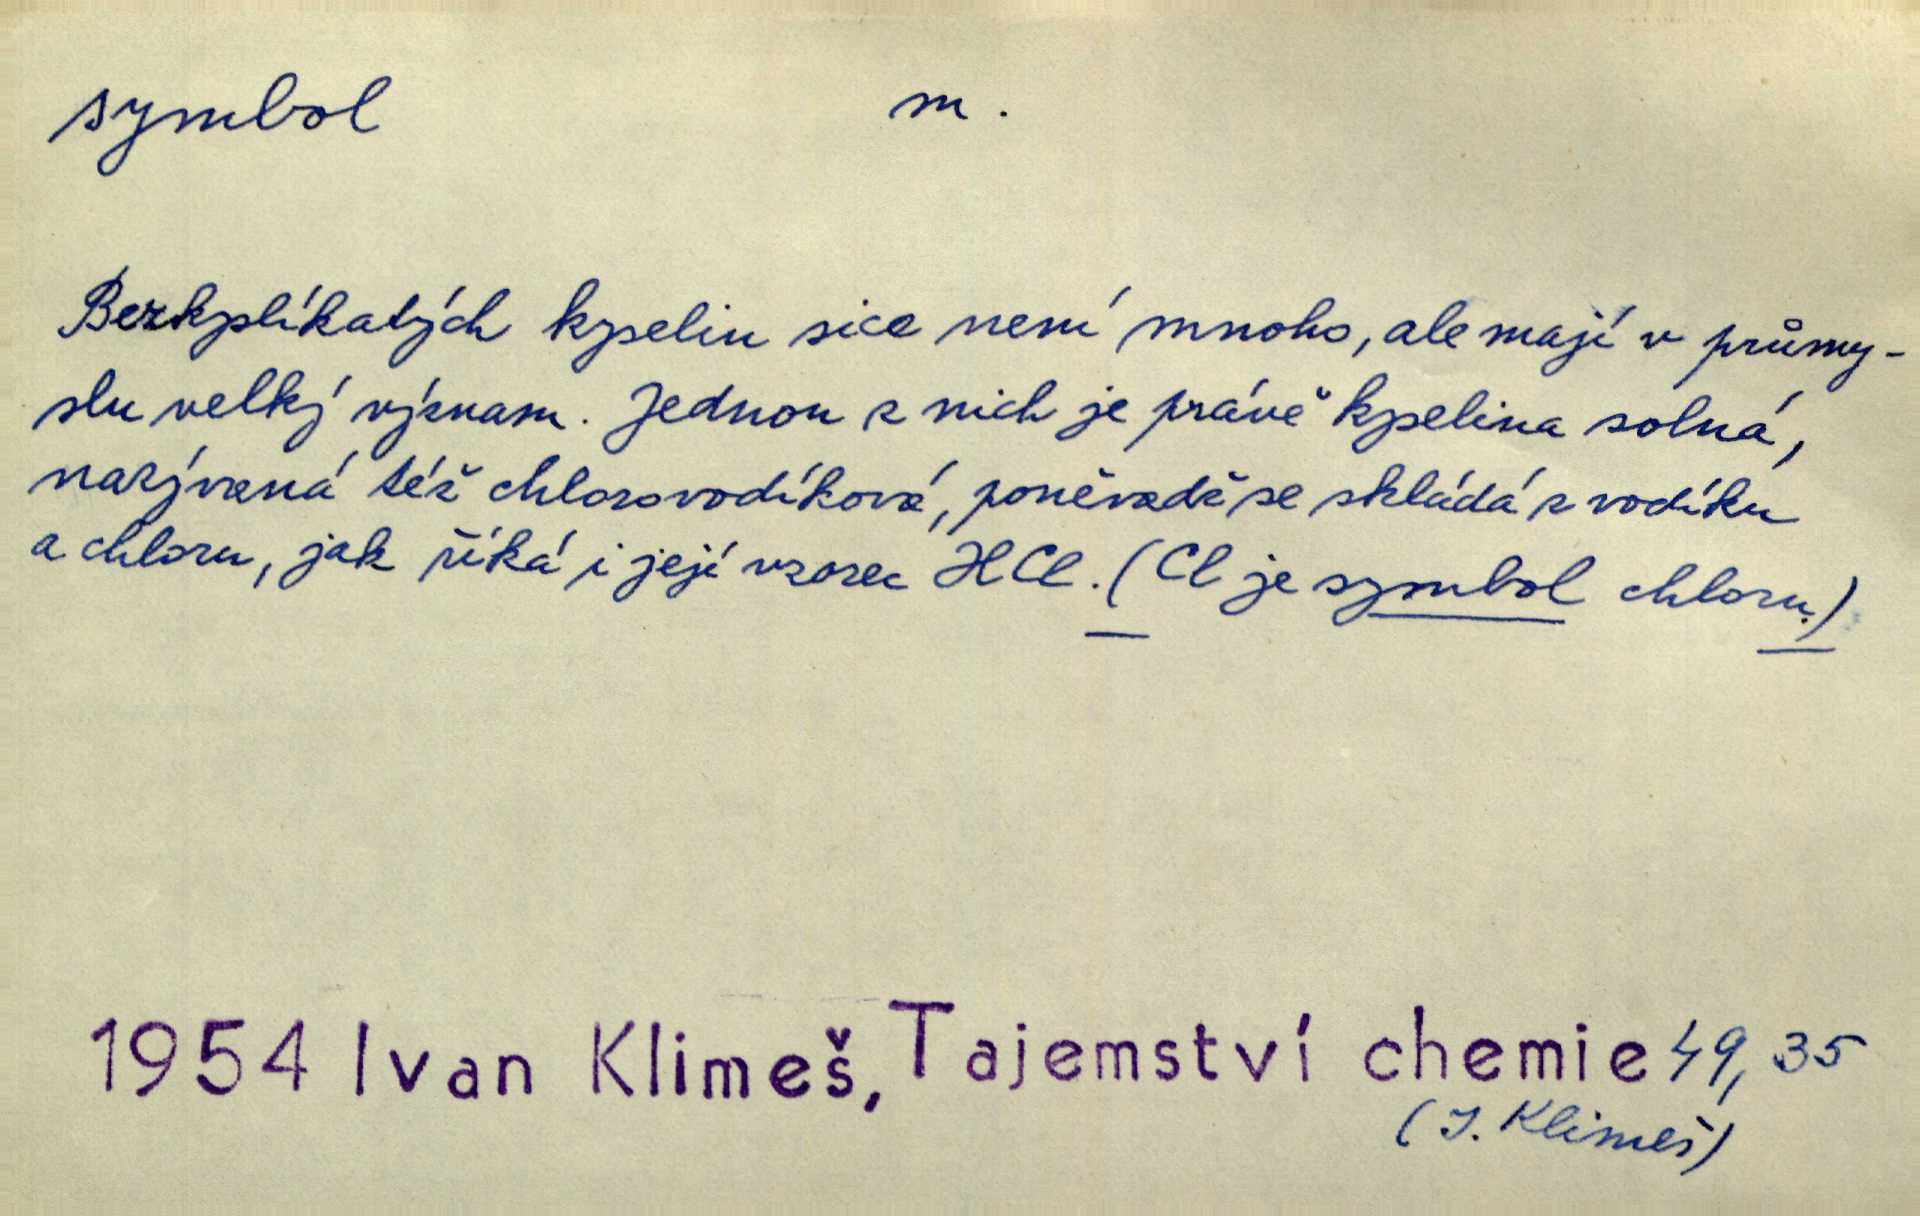 symbol m.
Bezkyslíkatých kyselin sice není mnoho, ale mají v průmy-
slu velký význam. Jednou z nich je právě kyselina solná,
nazývaná též chlorovodíková, poněvadž se skládá z vodíku
a chloru, jak říká i její vzorec HCl. (Cl je symbol chloru.)
1954 Ivan Klimeš, Tajemství chemie 49, 35
(I. Klimeš)